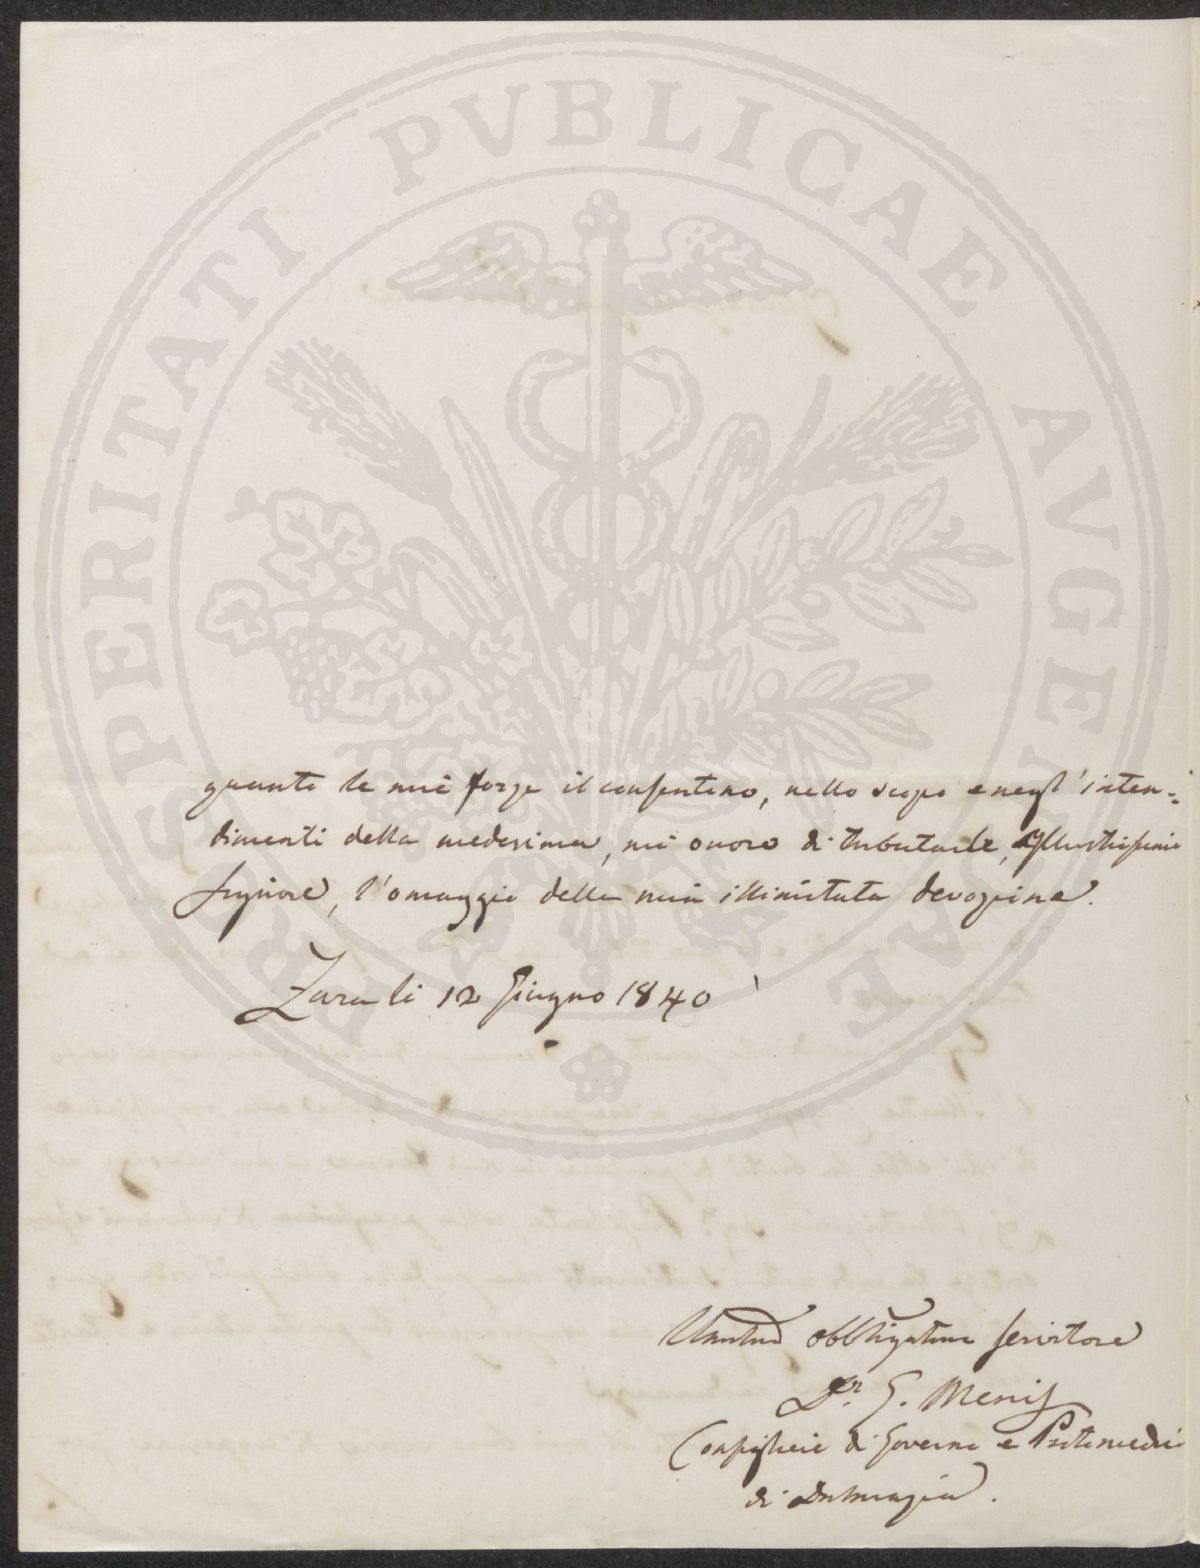 PROSPERITATI PVBLICAE AVGENDAE
quanto le mie forze il consentano, nello scopo e negl'inten-
dimenti della medesima, mi onoro di tributarle, Illustrissimo
Signore, l'omaggio della mia illimitata devozione.
Zara li 12 Giugno 1840
obbligatmo servitore
Dr. G. Menis
Consigliere di Governo e Protomedico
di Dalmazia.